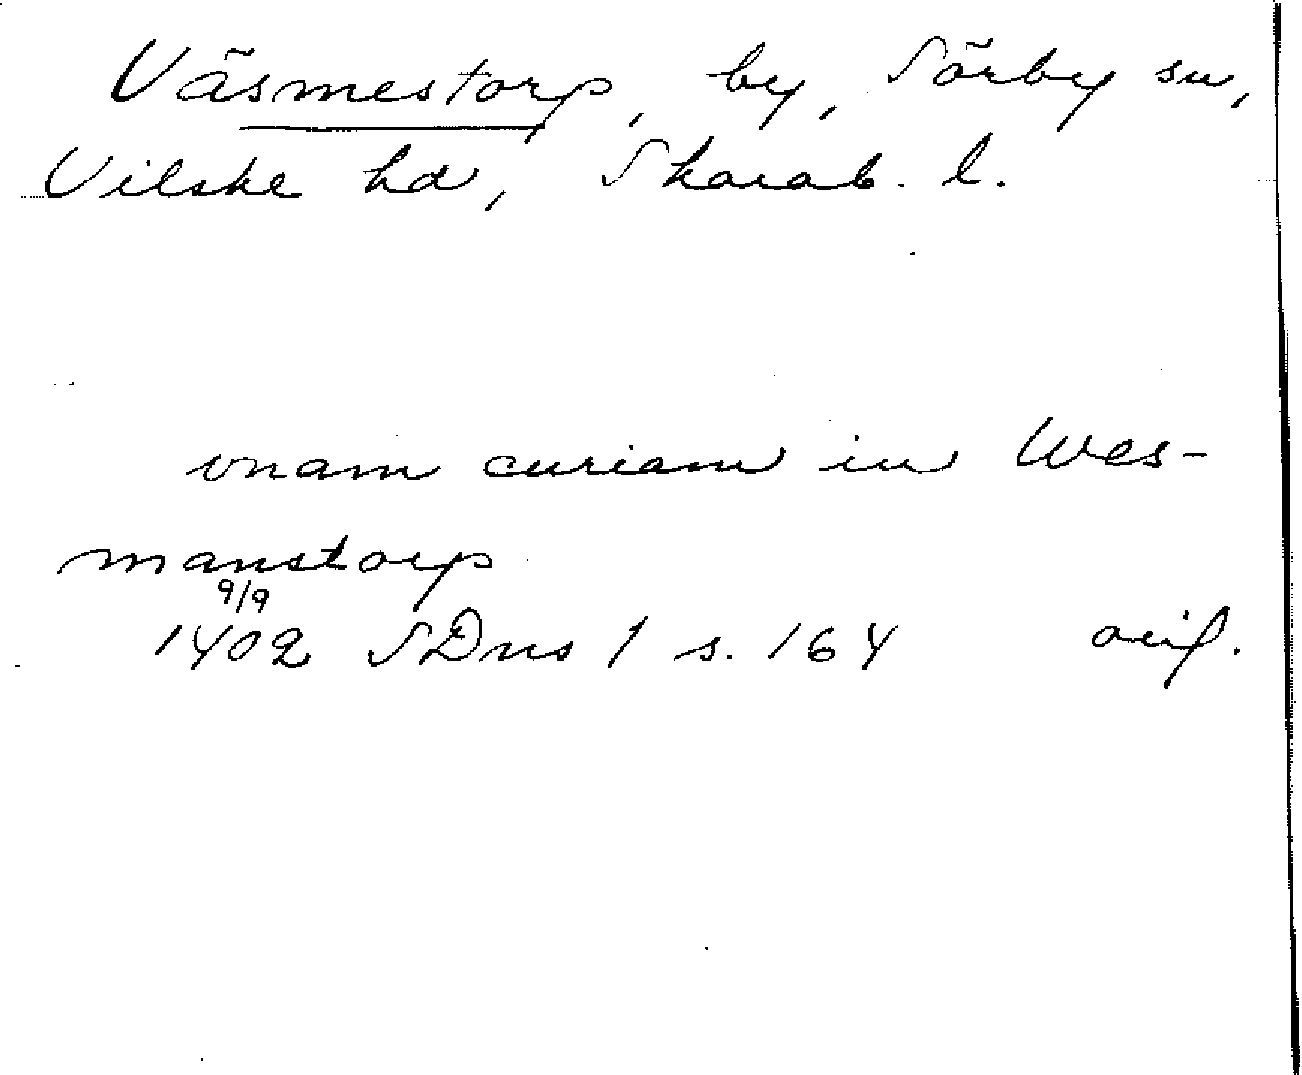 Väsmestorp, by, Sörby sn,
Vilske hd, Skarab. l.
vnam curiam in Wes-
manstorp
9/9
1402 SDns 1 s. 164 orig.